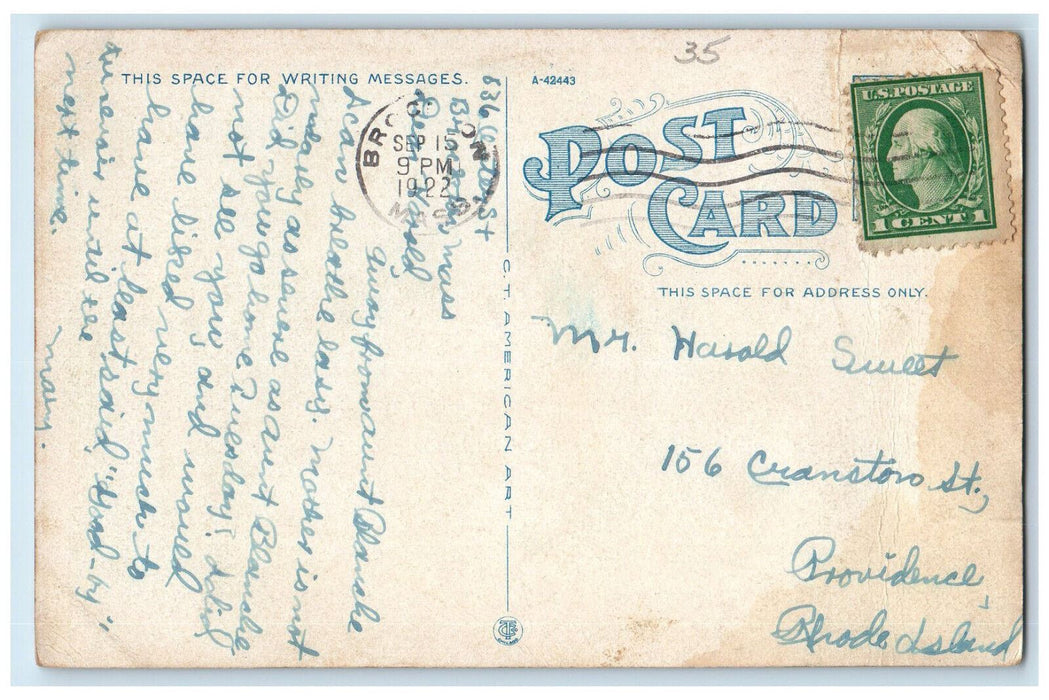 35
THIS SPACE FOR WRITING MESSAGES.
A-42443
POST CARD
U.S. POSTAGE
1 CENT 1
BROCKTON
SEP 15
9 PM
1922
MASS.
THIS SPACE FOR ADDRESS ONLY.
C.T. AMERICAN ART
Mr. Harold Sweet
156 Cranston St.,
Providence,
Rhode Island
836 St
Mass
Dear Harold
Away from aunt Blanche
I can breathe easy. Mother is not
nearly as severe as aunt Blanche
Did you go home Tuesday? I did
not see you, and would
have liked very much to
have at least said "Good-by"
au revoir until the
next time.
Mary.